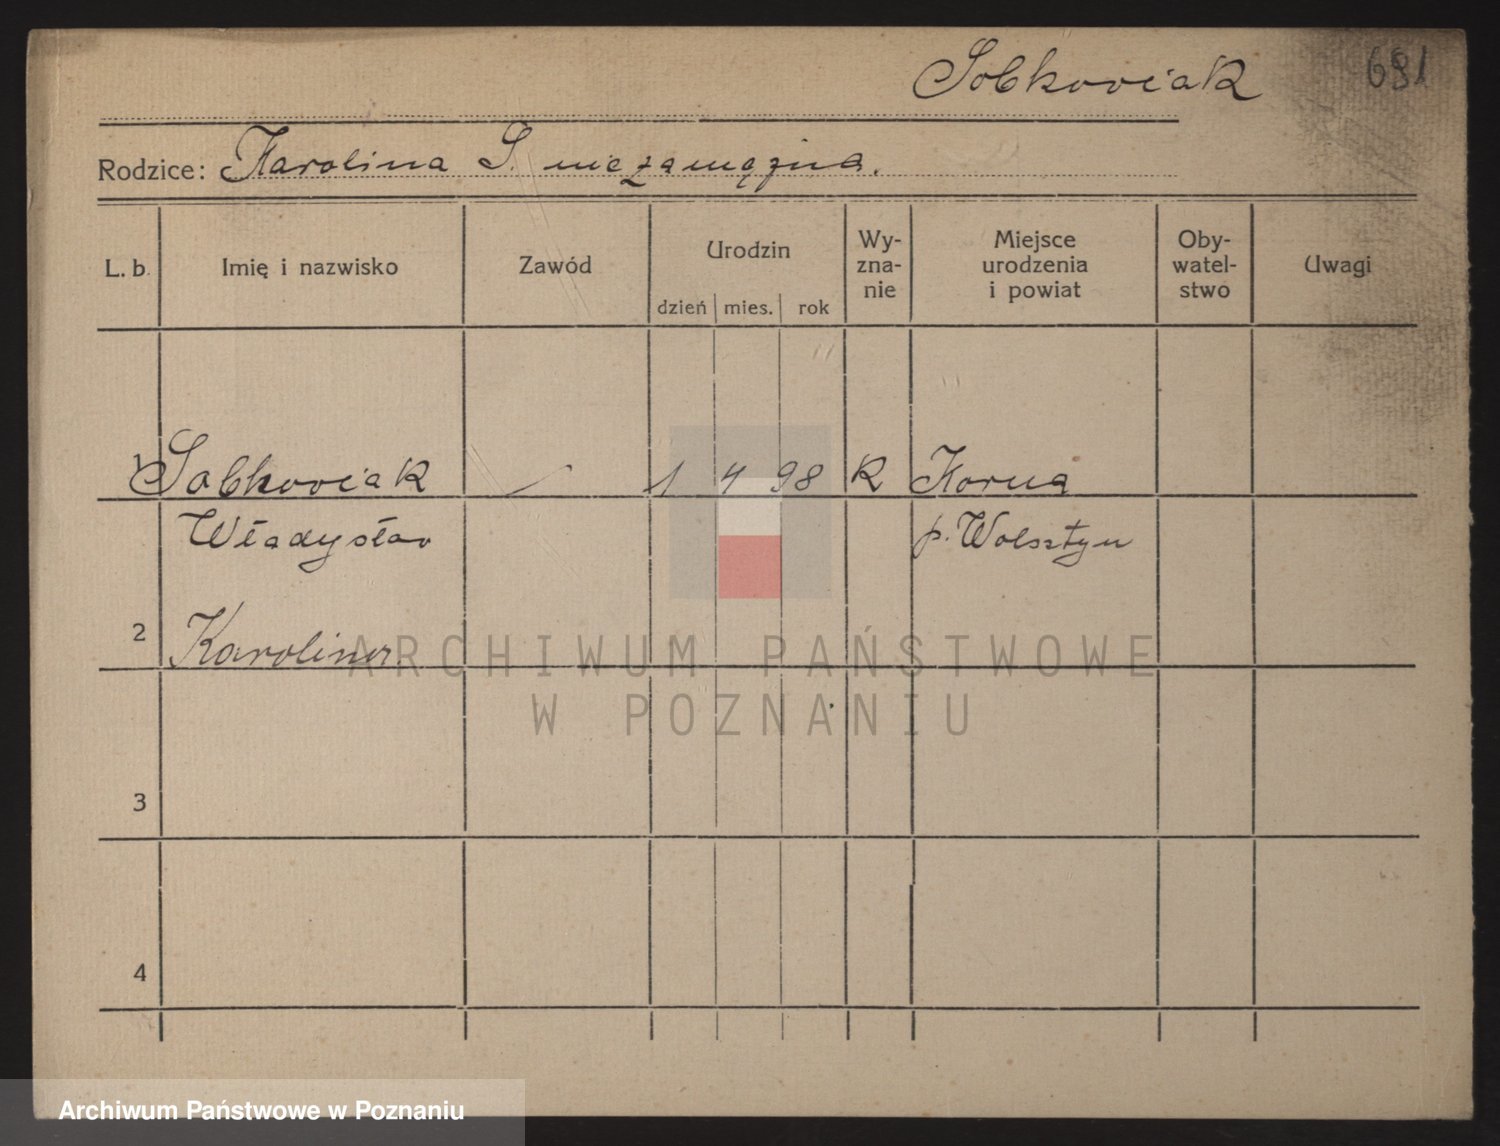 Sobkowiak 691
Rodzice: Karolina S. niezamężna.
L. b. Imię i nazwisko Zawód Urodzin dzień mies. rok Wy-zna-nie Miejsce urodzenia i powiat Oby-watel-stwo Uwagi
1 Sobkowiak 1 4 98 K Korna
Władysław p. Wolsztyn
2 Karolina.
3
4
ARCHIWUM PAŃSTWOWE
W POZNANIU
Archiwum Państwowe w Poznaniu